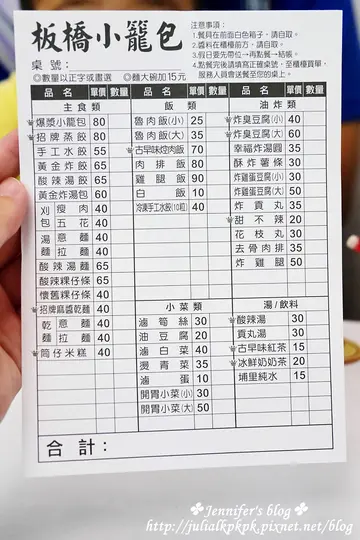 板橋小籠包
注意事項：
1.餐具在前面白色箱子，請自取。
2.醬料在櫃檯前方，請自取。
3.假日要先帶位→再點餐→結帳。
4.點餐完後請填寫正確桌號，至櫃檯買單，
服務人員會送餐至您的桌上。
桌號：
◎數量以正字或畫選 ◎麵大碗加15元
品名 單價 數量 品名 單價 數量 品名 單價 數量
主食類
爆漿小籠包 80
招牌蒸餃 80
手工水餃 55
黃金炸餃 65
酸辣湯餃 65
黃金炸包 60
刈瘦肉 40
包五花 40
湯意麵 40
麵拉麵 40
酸辣湯麵 65
酸辣粿仔條 65
懷舊粿仔條 40
招牌麻醬乾麵 40
乾意麵 40
麵拉麵 40
筒仔米糕 40
飯類
魯肉飯(小) 25
魯肉飯(大) 35
古早味焢肉飯 70
肉排飯 80
雞腿飯 90
白飯 10
冷凍手工水餃(10粒) 40
小菜類
滷筍絲 30
油豆腐 20
滷白菜 40
燙青菜 35
滷蛋 10
開胃小菜(小) 30
開胃小菜(大) 50
油炸類
炸臭豆腐(小) 40
炸臭豆腐(大) 60
幸福炸湯圓 35
酥炸薯條 30
炸雞蛋豆腐(小) 30
炸雞蛋豆腐(大) 50
炸貢丸 35
甜不辣 20
花枝丸 30
去骨肉排 35
炸雞腿 50
湯/飲料
酸辣湯 30
貢丸湯 30
古早味紅茶 15
冰鮮奶奶茶 20
埔里純水 15
合計：
Jennifer's blog
http://julialkpkpk.pixnet.net/blog